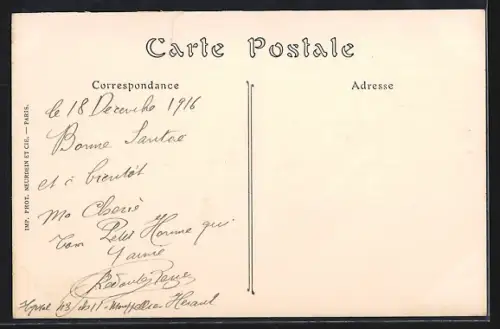 Carte Postale
Correspondance
Adresse
IMP. PHOT. NEURDEIN ET CIE. — PARIS.
le 18 Decembre 1916
Bonne Santée
et à bientôt
Ma Cherie
Ton Petit Homme qui
t'aime
Hopital Herault